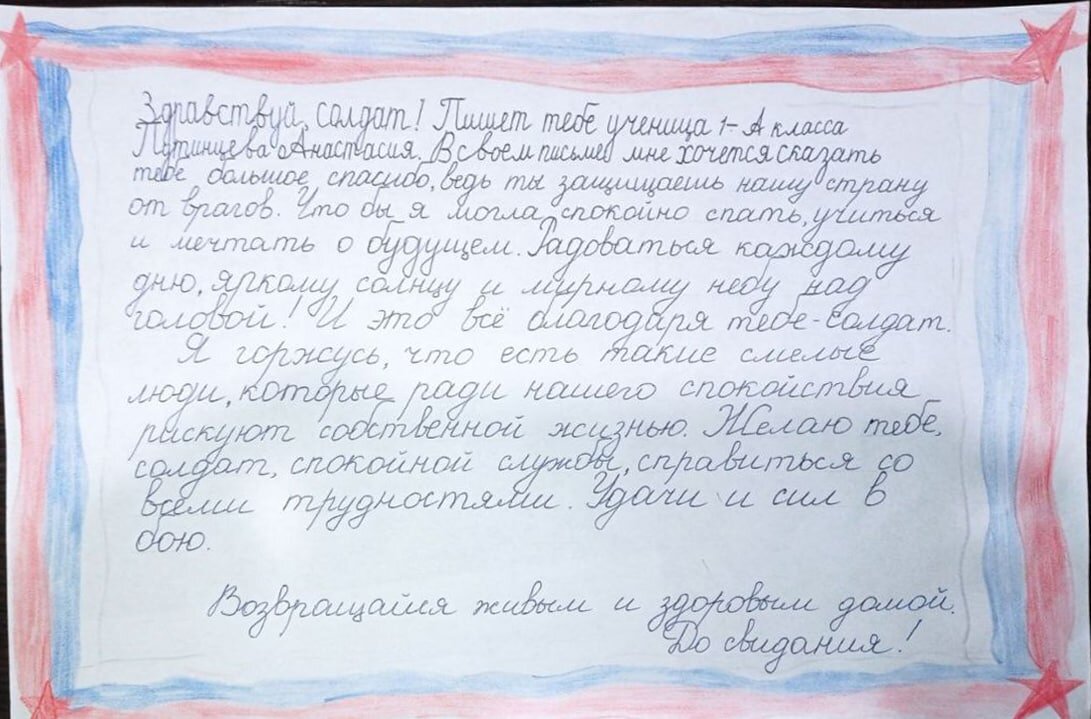 Здравствуй, солдат! Пишет тебе ученица 1-А класса
Путинцева Анастасия. В своем письме мне хочется сказать
тебе большое спасибо, ведь ты защищаешь нашу страну
от врагов. Что бы я могла спокойно спать, учиться
и мечтать о будущем. Радоваться каждому
дню, яркому солнцу и мирному небу над
головой! И это всё благодаря тебе-солдат.
Я горжусь, что есть такие смелые
люди, которые ради нашего спокойствия
рискуют собственной жизнью. Желаю тебе,
солдат, спокойной службы, справиться со
всеми трудностями. Удачи и сил в
бою.
Возвращайся живым и здоровым домой.
До свидания!